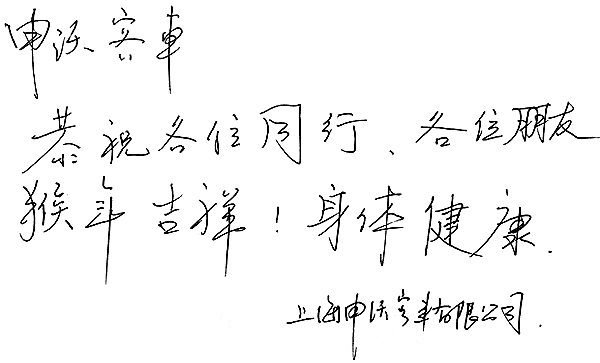 申沃客車
恭祝各位同行、各位朋友
猴年吉祥!身体健康.
上海申沃客车有限公司.